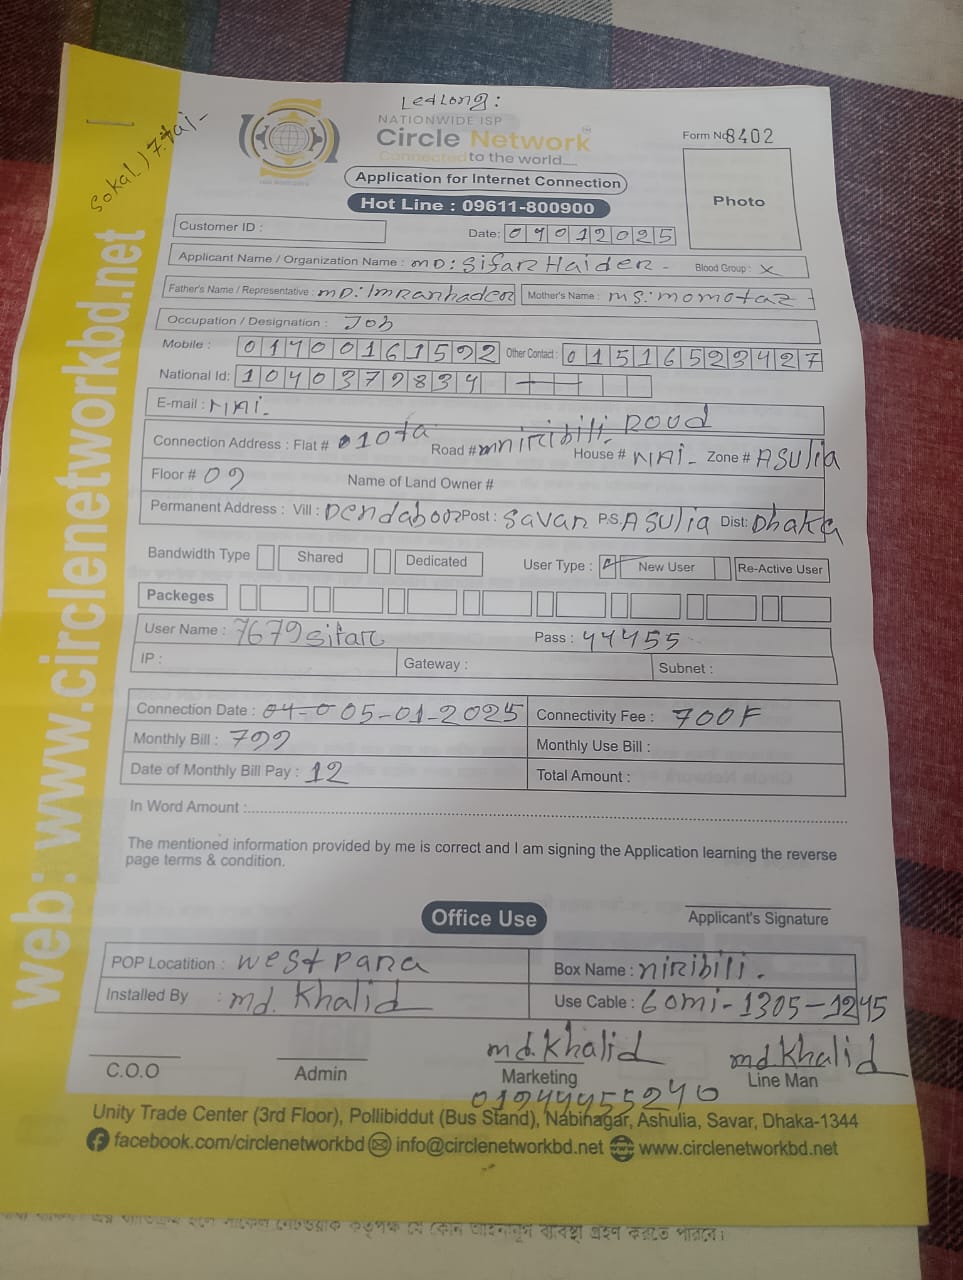 Ledlong:
sokal) 7:tai-
NATIONWIDE ISP
Circle Network
Connected to the world....
Form No 8402
Application for Internet Connection
Photo
Hot Line : 09611-800900
Customer ID :
Date: 04012025
Applicant Name / Organization Name : MD: Sifar Haider - Blood Group : X
Father's Name / Representative : MD: Imranhader Mother's Name : MS: momotaz
Occupation / Designation : Job
Mobile : 01700161592 Other Contact : 01516523427
National Id: 1040379834
E-mail : NAi.
Connection Address : Flat # 10ta Road # niribili. Roud House # NAi- Zone # ASulia
Floor # 09 Name of Land Owner #
Permanent Address : Vill : Dendaboor Post : Savar P.S. ASulia Dist: Dhaka
Bandwidth Type Shared Dedicated User Type : New User Re-Active User
Packeges
User Name : 7679sifar Pass : 44455
IP : Gateway : Subnet :
Connection Date : 04-0 05-01-2025 Connectivity Fee : 700F
Monthly Bill : 799 Monthly Use Bill :
Date of Monthly Bill Pay : 12 Total Amount :
In Word Amount :
The mentioned information provided by me is correct and I am signing the Application learning the reverse
page terms & condition.
Office Use
Applicant's Signature
POP Locatition : west para Box Name : niribili.
Installed By : md. Khalid Use Cable : 60mi-1305-1245
md. Khalid md. Khalid
C.O.O Admin Marketing Line Man
01944455240
Unity Trade Center (3rd Floor), Pollibiddut (Bus Stand), Nabinagar, Ashulia, Savar, Dhaka-1344
facebook.com/circlenetworkbd info@circlenetworkbd.net www.circlenetworkbd.net
web: www.circlenetworkbd.net